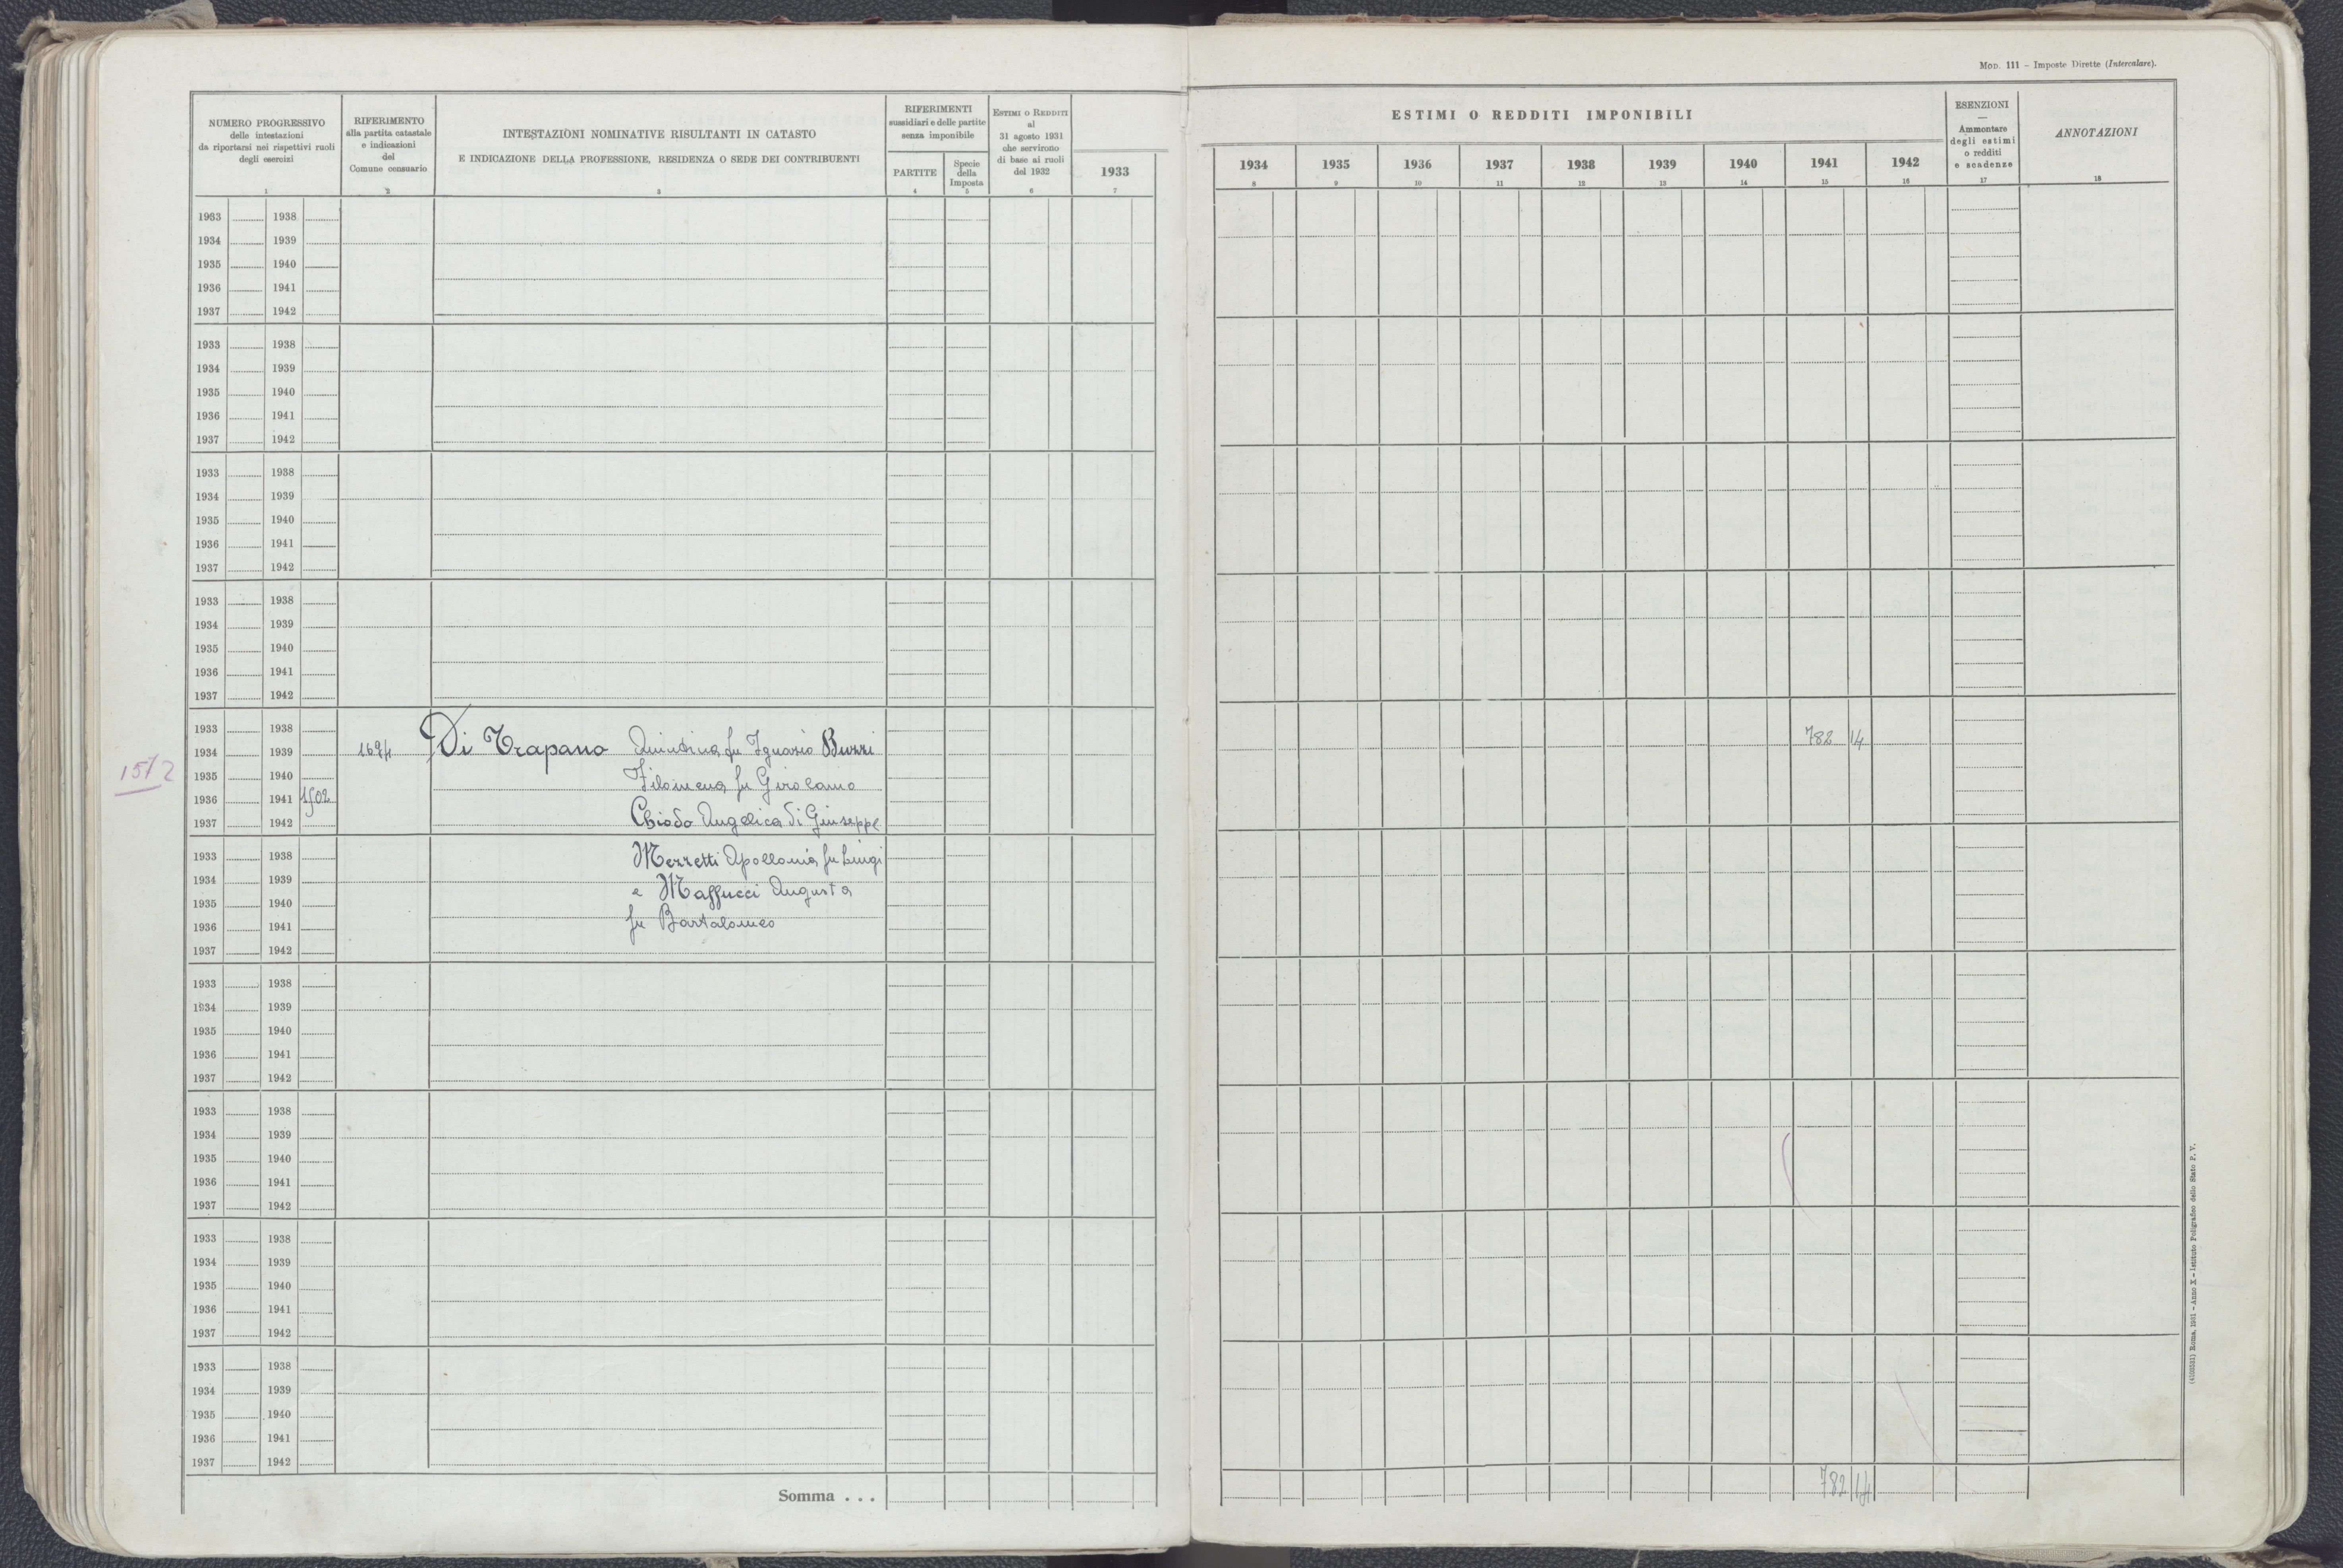 Mod. 111 – Imposte Dirette (Intercalare).
NUMERO PROGRESSIVO
delle intestazioni
da riportarsi nei rispettivi ruoli
degli esercizi
1
RIFERIMENTO
alla partita catastale
e indicazioni
del
Comune censuario
2
INTESTAZIONI NOMINATIVE RISULTANTI IN CATASTO
E INDICAZIONE DELLA PROFESSIONE, RESIDENZA O SEDE DEI CONTRIBUENTI
3
RIFERIMENTI
sussidiari e delle partite
senza imponibile
PARTITE
4
Specie
della
Imposta
5
Estimi o Redditi
al
31 agosto 1931
che servirono
di base ai ruoli
del 1932
6
1933
7
ESTIMI O REDDITI IMPONIBILI
1934 1935 1936 1937 1938 1939 1940 1941 1942
8 9 10 11 12 13 14 15 16
ESENZIONI
—
Ammontare
degli estimi
o redditi
e scadenze
17
ANNOTAZIONI
18
1933 1938
1934 1939
1935 1940
1936 1941
1937 1942
1933 1938
1934 1939
1935 1940
1936 1941
1937 1942
1933 1938
1934 1939
1935 1940
1936 1941
1937 1942
1933 1938
1934 1939
1935 1940
1936 1941
1937 1942
1933 1938
1934 1939 1694 Di Trapano Quintina fu Ignazio Buzzi 782 14
1512
1935 1940 Filomena fu Girolamo
1936 1941 1502
1937 1942 Chiodo Angelica di Giuseppe
1933 1938 Merretti Apollonia fu Luigi
1934 1939 e Maffucci Augusta
1935 1940
1936 1941 fu Bartolomeo
1937 1942
1933 1938
1934 1939
1935 1940
1936 1941
1937 1942
1933 1938
1934 1939
1935 1940
1936 1941
1937 1942
1933 1938
1934 1939
1935 1940
1936 1941
1937 1942
1933 1938
1934 1939
1935 1940
1936 1941
1937 1942
Somma . . . 782 14
(4100531) Roma, 1931 – Anno X – Istituto Poligrafico dello Stato P. V.